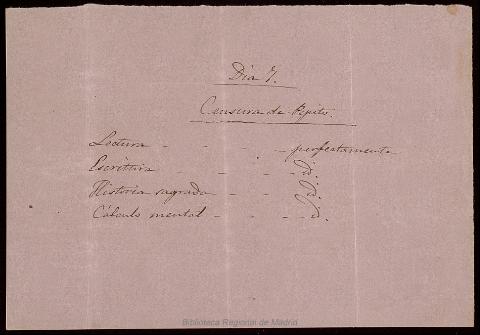 Día 7.
Censura de Pepito.
Lectura - - - - perfectamente
Escritura - - - id.
Historia sagrada - - - id.
Cálculo mental - - - id.
Biblioteca Regional de Madrid